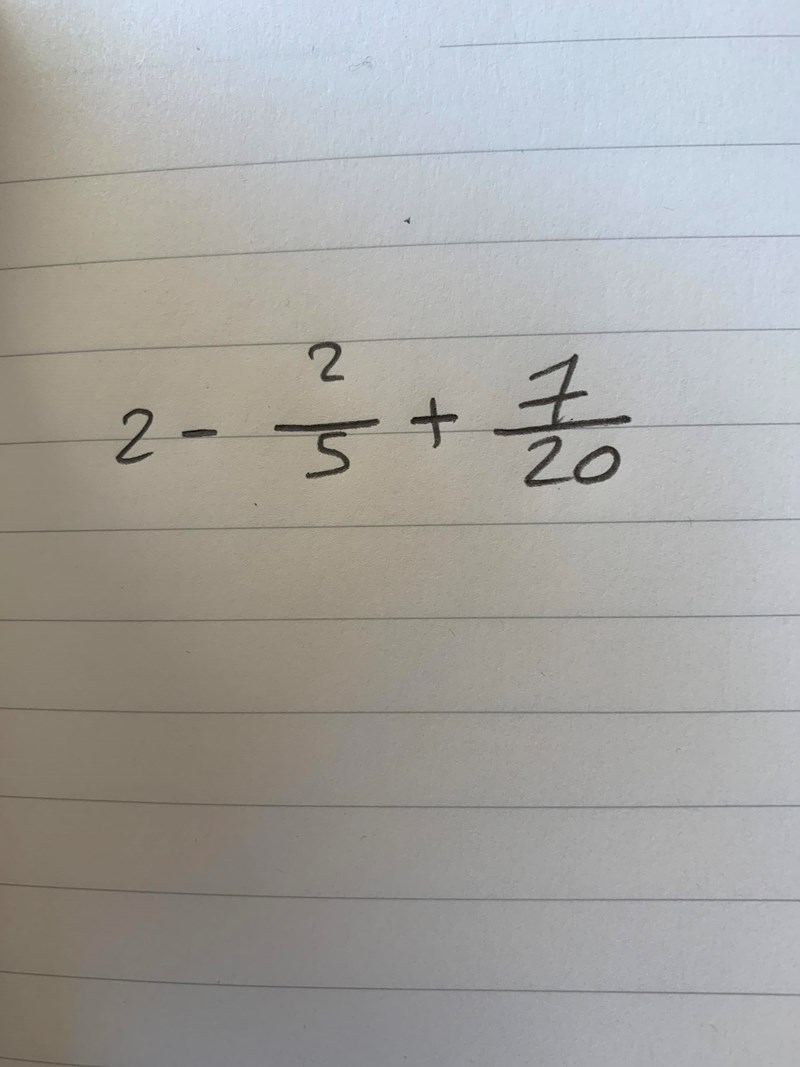 2 - 2/5 + 7/20